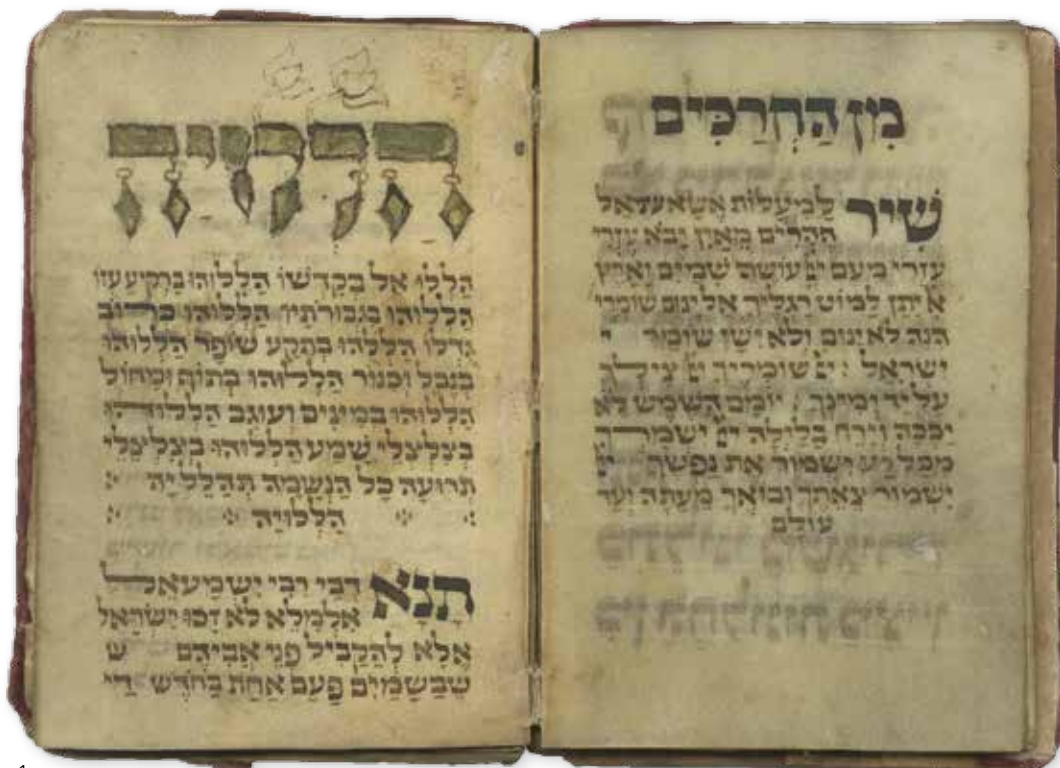 מן החרכים
שיר למעלות אשא אל
ההרים מאין יבא עזרי
עזרי מעם יי עושה שמים וארץ
א יתן למוט רגליך אל ינום שומרך
הנה לא ינום ולא ישן שומר י
ישראל : יי שומריך יי ציליך
על יד ימינך יומם השמש לא
יככה וירח בלילה יי ישמרך
מכל רע ישמור את נפשך יי
ישמור צאתך ובואך מעתה ועד
עולם
הללו אל בקדשו הללוהו ברקיע עזו
הללוהו בגבורתיו הללוהו כרוב
גדלו הללהו בתקע שופר הללוהו
בנבל וכנור הללוהו בתוף ומחול
הללוהו במינים ועוגב הללוהו
בצלצלי שמע הללוהו בצלצלי
תרועה כל הנשמה תהלל יה
הללויה
תנא דבי רבי ישמעאל
אלמלא לא זכו ישראל
אלא להקביל פני אביהם ש
שבשמים פעם אחת בחדש דיי
1